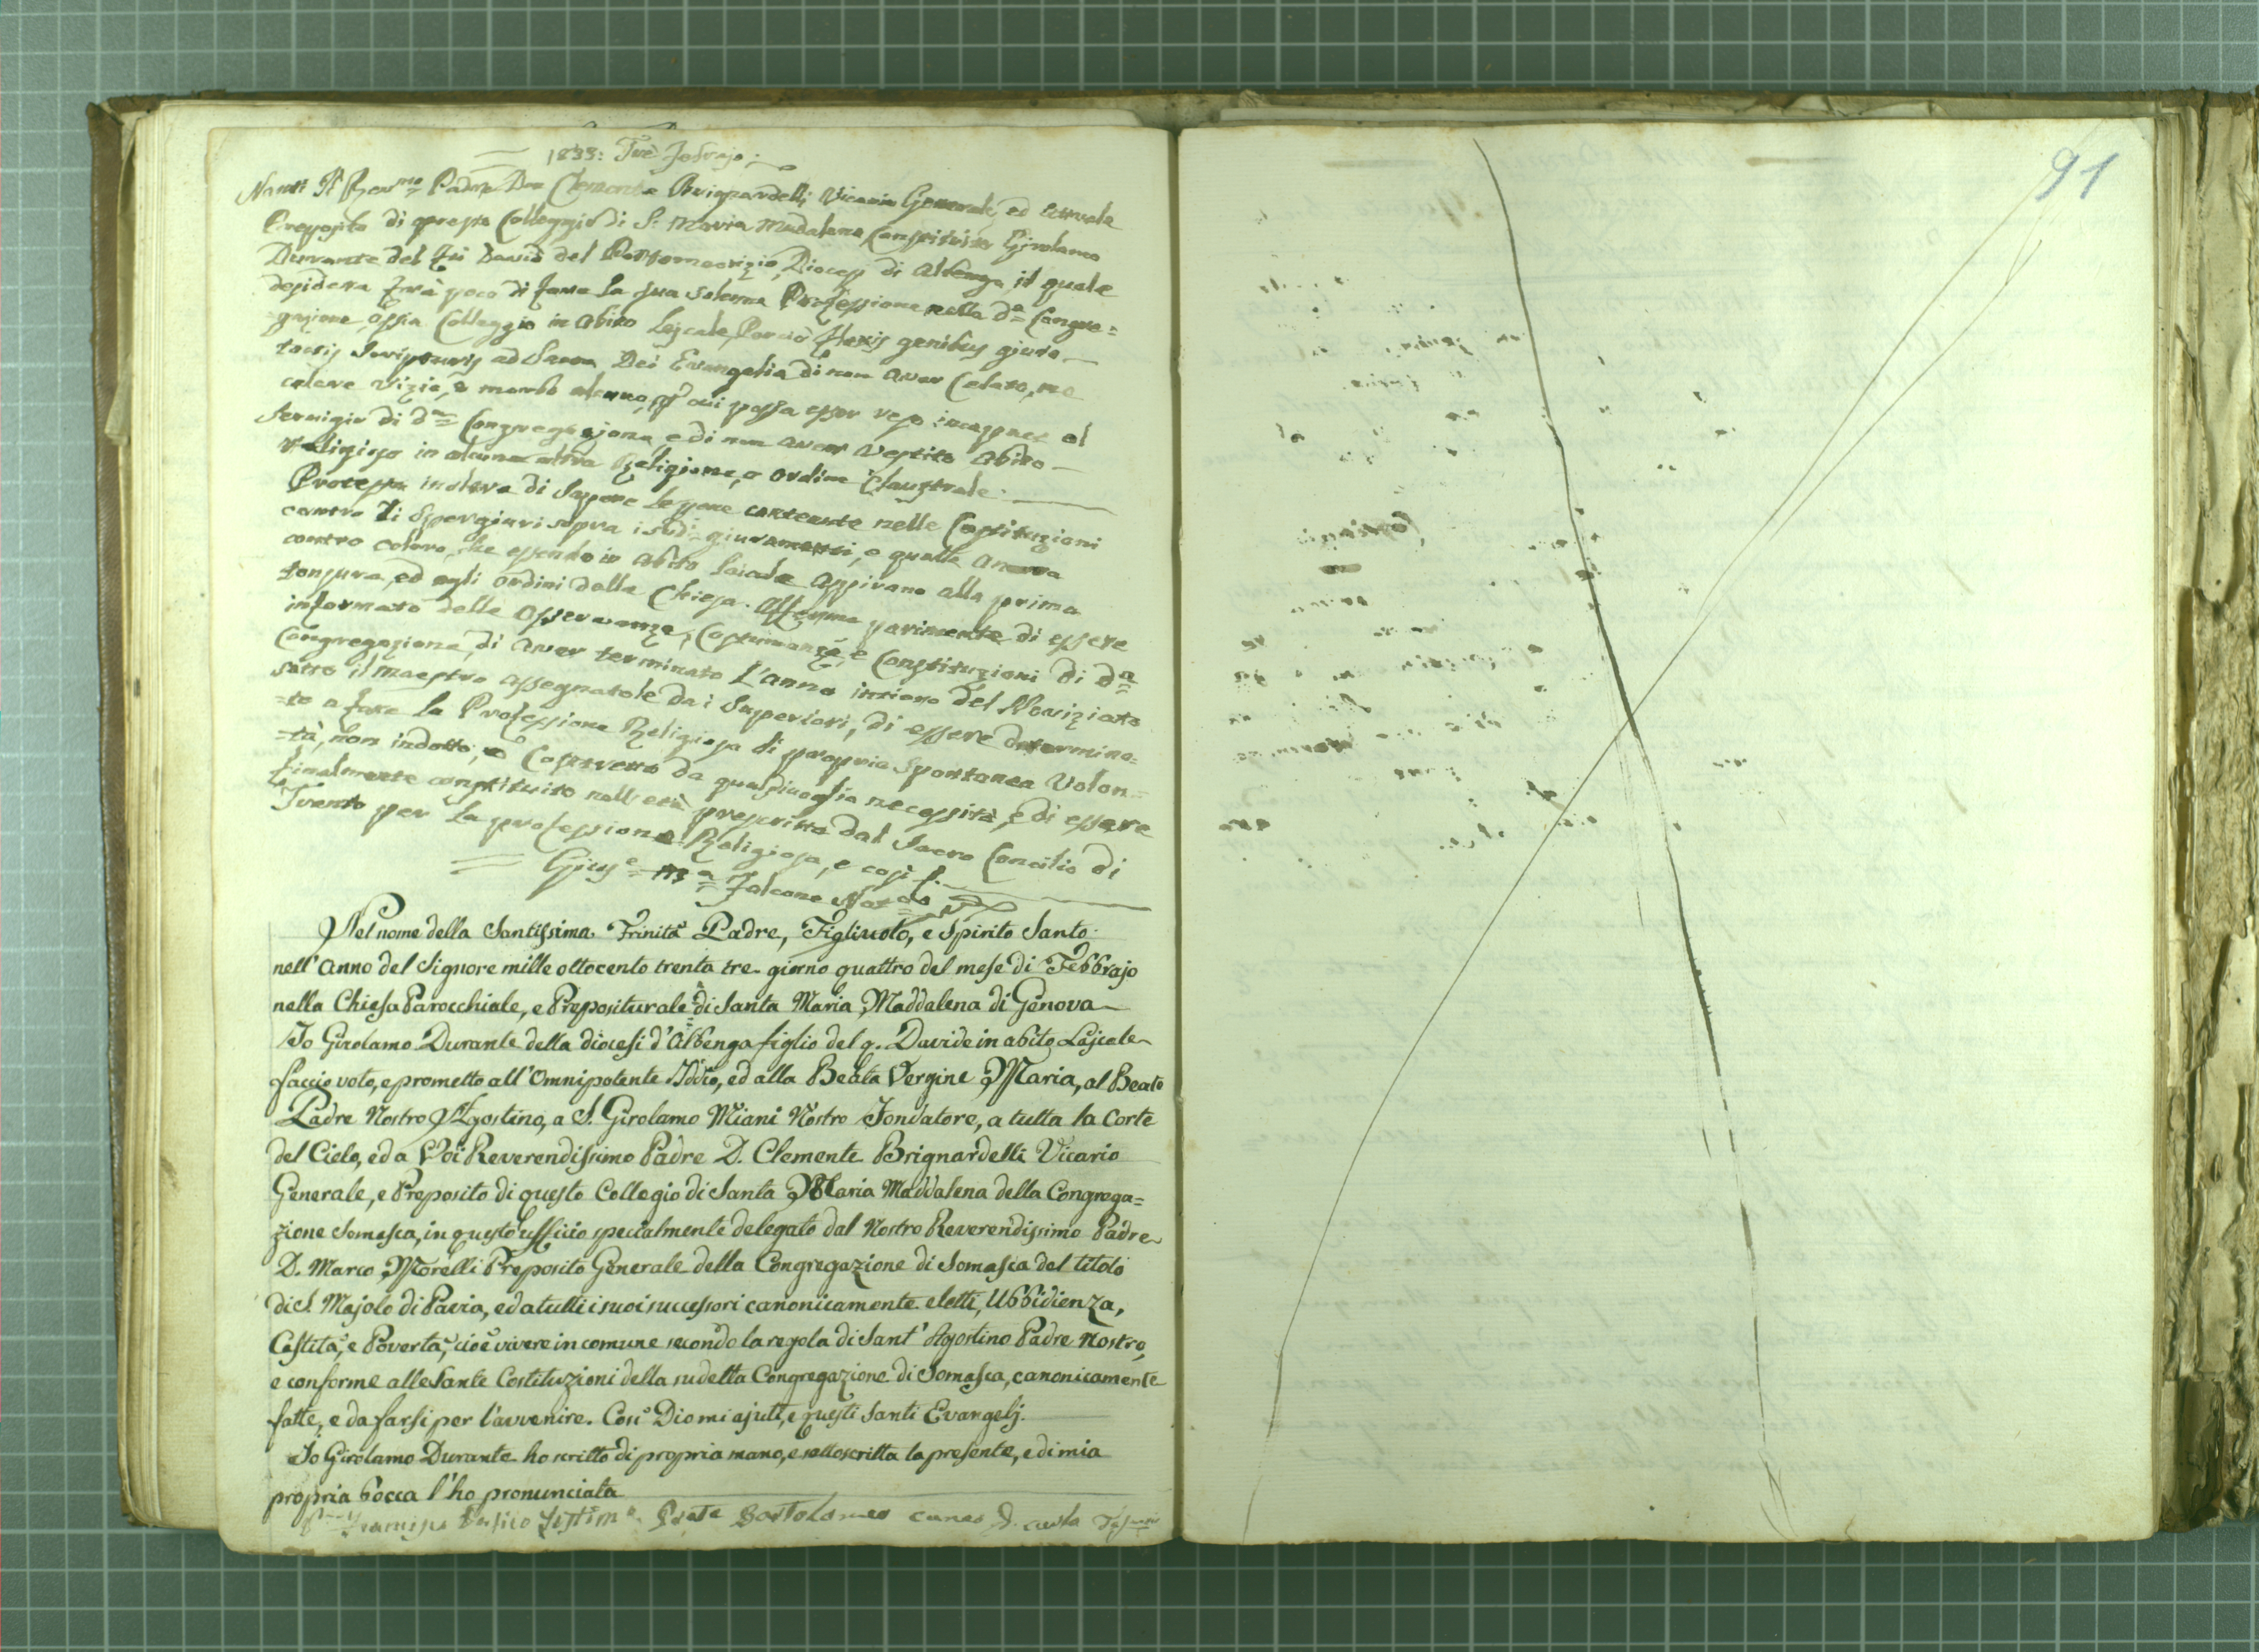 1833: Tre Febrajo;
Nanti Il Rev.mo Padre Don Clemente Brignardelli Vicario Generale, ed attuale
Preposito di questo Colleggio di S. Maria Madalena Constituito Girolamo
Durante del fù David del Portomaorizio, Diocesi di Albenga il quale
desidera frà poco di fare la sua solenne Professione nella d.a Congre=
=gazione, ossia Colleggio in abito Lajcale, Perciò flexis genibus giura
tactis Scripturis ad Sacra Dei Evangelia di non aver Celato, ne
celare vizio, o morbo alcuno, p cui possa esser reso incapace al
servigio di d.a Congregazione, e di non aver Vestito abito
religioso in alcuna altra Religione, o ordine Claustrale.
Protesta inoltre di sapere le pene contenute nelle Costituzioni
contro li spergiuri sopra i sud.i giuramenti, e quelle ancora
contro coloro, che essendo in abito laicale aspirano alla prima
tonsura, ed agli ordini della Chiesa. Afferma parimente di essere
informato delle osservanze, Costumanze, e Constituzioni di d.a
Congregazione, di aver terminato L'anno intiero del Noviziato
sotto il Maestro assegnatole dai Superiori, di essere determina=
=to a fare la Professione Religiosa di propria spontanea Volon=
=tà, non indotto, o Costretto da qualsivoglia necessità, e di essere
finalmente constituito nell'età prescritta dal Sacro Concilio di
Trento per la professione Religiosa, e così f.
Gius.e M.a Falcone Not.o
Nel nome della Santissima Trinità Padre, Figliuolo, e Spirito Santo
nell'Anno del Signore mille ottocento trenta tre giorno quattro del mese di Febbrajo
nella Chiesa Parocchiale, e Prepositurale di Santa Maria Maddalena di Genova
Io Girolamo Durante della diocesi d'Albenga figlio del q. Davide in abito Lajcale
faccio voto, e prometto all'Omnipotente Iddio, ed alla Beata Vergine Maria, al Beato
Padre Nostro Agostino, a S. Girolamo Miani Nostro Fondatore, a tutta la Corte
del Cielo, ed a Voi Reverendissimo Padre D. Clemente Brignardelli Vicario
Generale, e Preposito di questo Collegio di Santa Maria Maddalena della Congrega=
zione Somasca, in questo ufficio specialmente delegato dal Nostro Reverendissimo Padre
D. Marco Morelli Preposito Generale della Congregazione di Somasca del titolo
di S. Majolo di Pavia, ed a tutti i suoi successori canonicamente eletti, Ubbidienza,
Castità, e Povertà, cioè vivere in comune secondo la regola di Sant'Agostino Padre Nostro,
e conforme alle Sante Costituzioni della sudetta Congregazione di Somasca, canonicamente
fatte, e da farsi per l'avvenire. Così Dio mi ajuti, e questi Santi Evangelj.
Io Girolamo Durante ho scritto di propria mano, e sottoscritta la presente, e di mia
propria bocca l'ho pronunciata
Prete Bartolomeo Cuneo
91